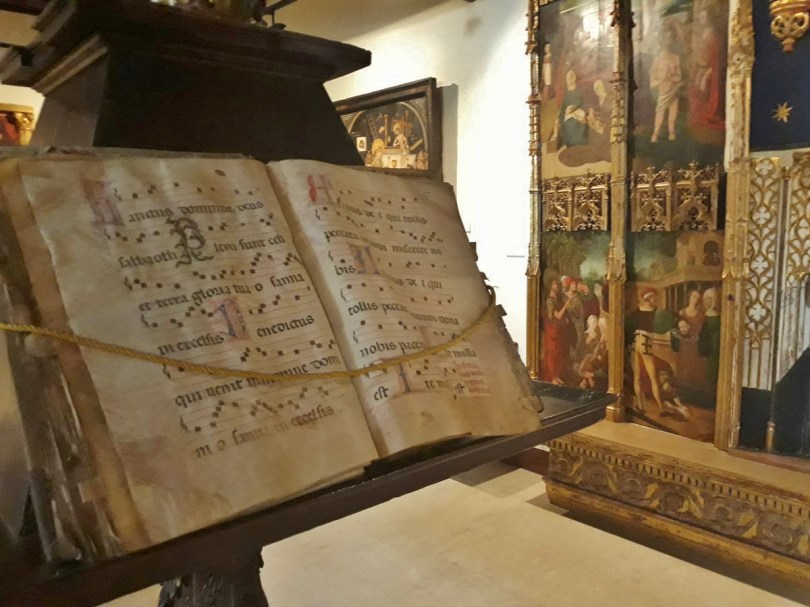 Sanctus dominus deus
sabbaoth Pleni sunt celi
et terra gloria tua o sanna
in excelsis Benedictus
qui venit in nomine dom
ni o sanna in excelsis
Agnus de i qui tollis
peccata miserere no
bis de i qui
tollis peccata dona
nobis pacem missa
est Ite